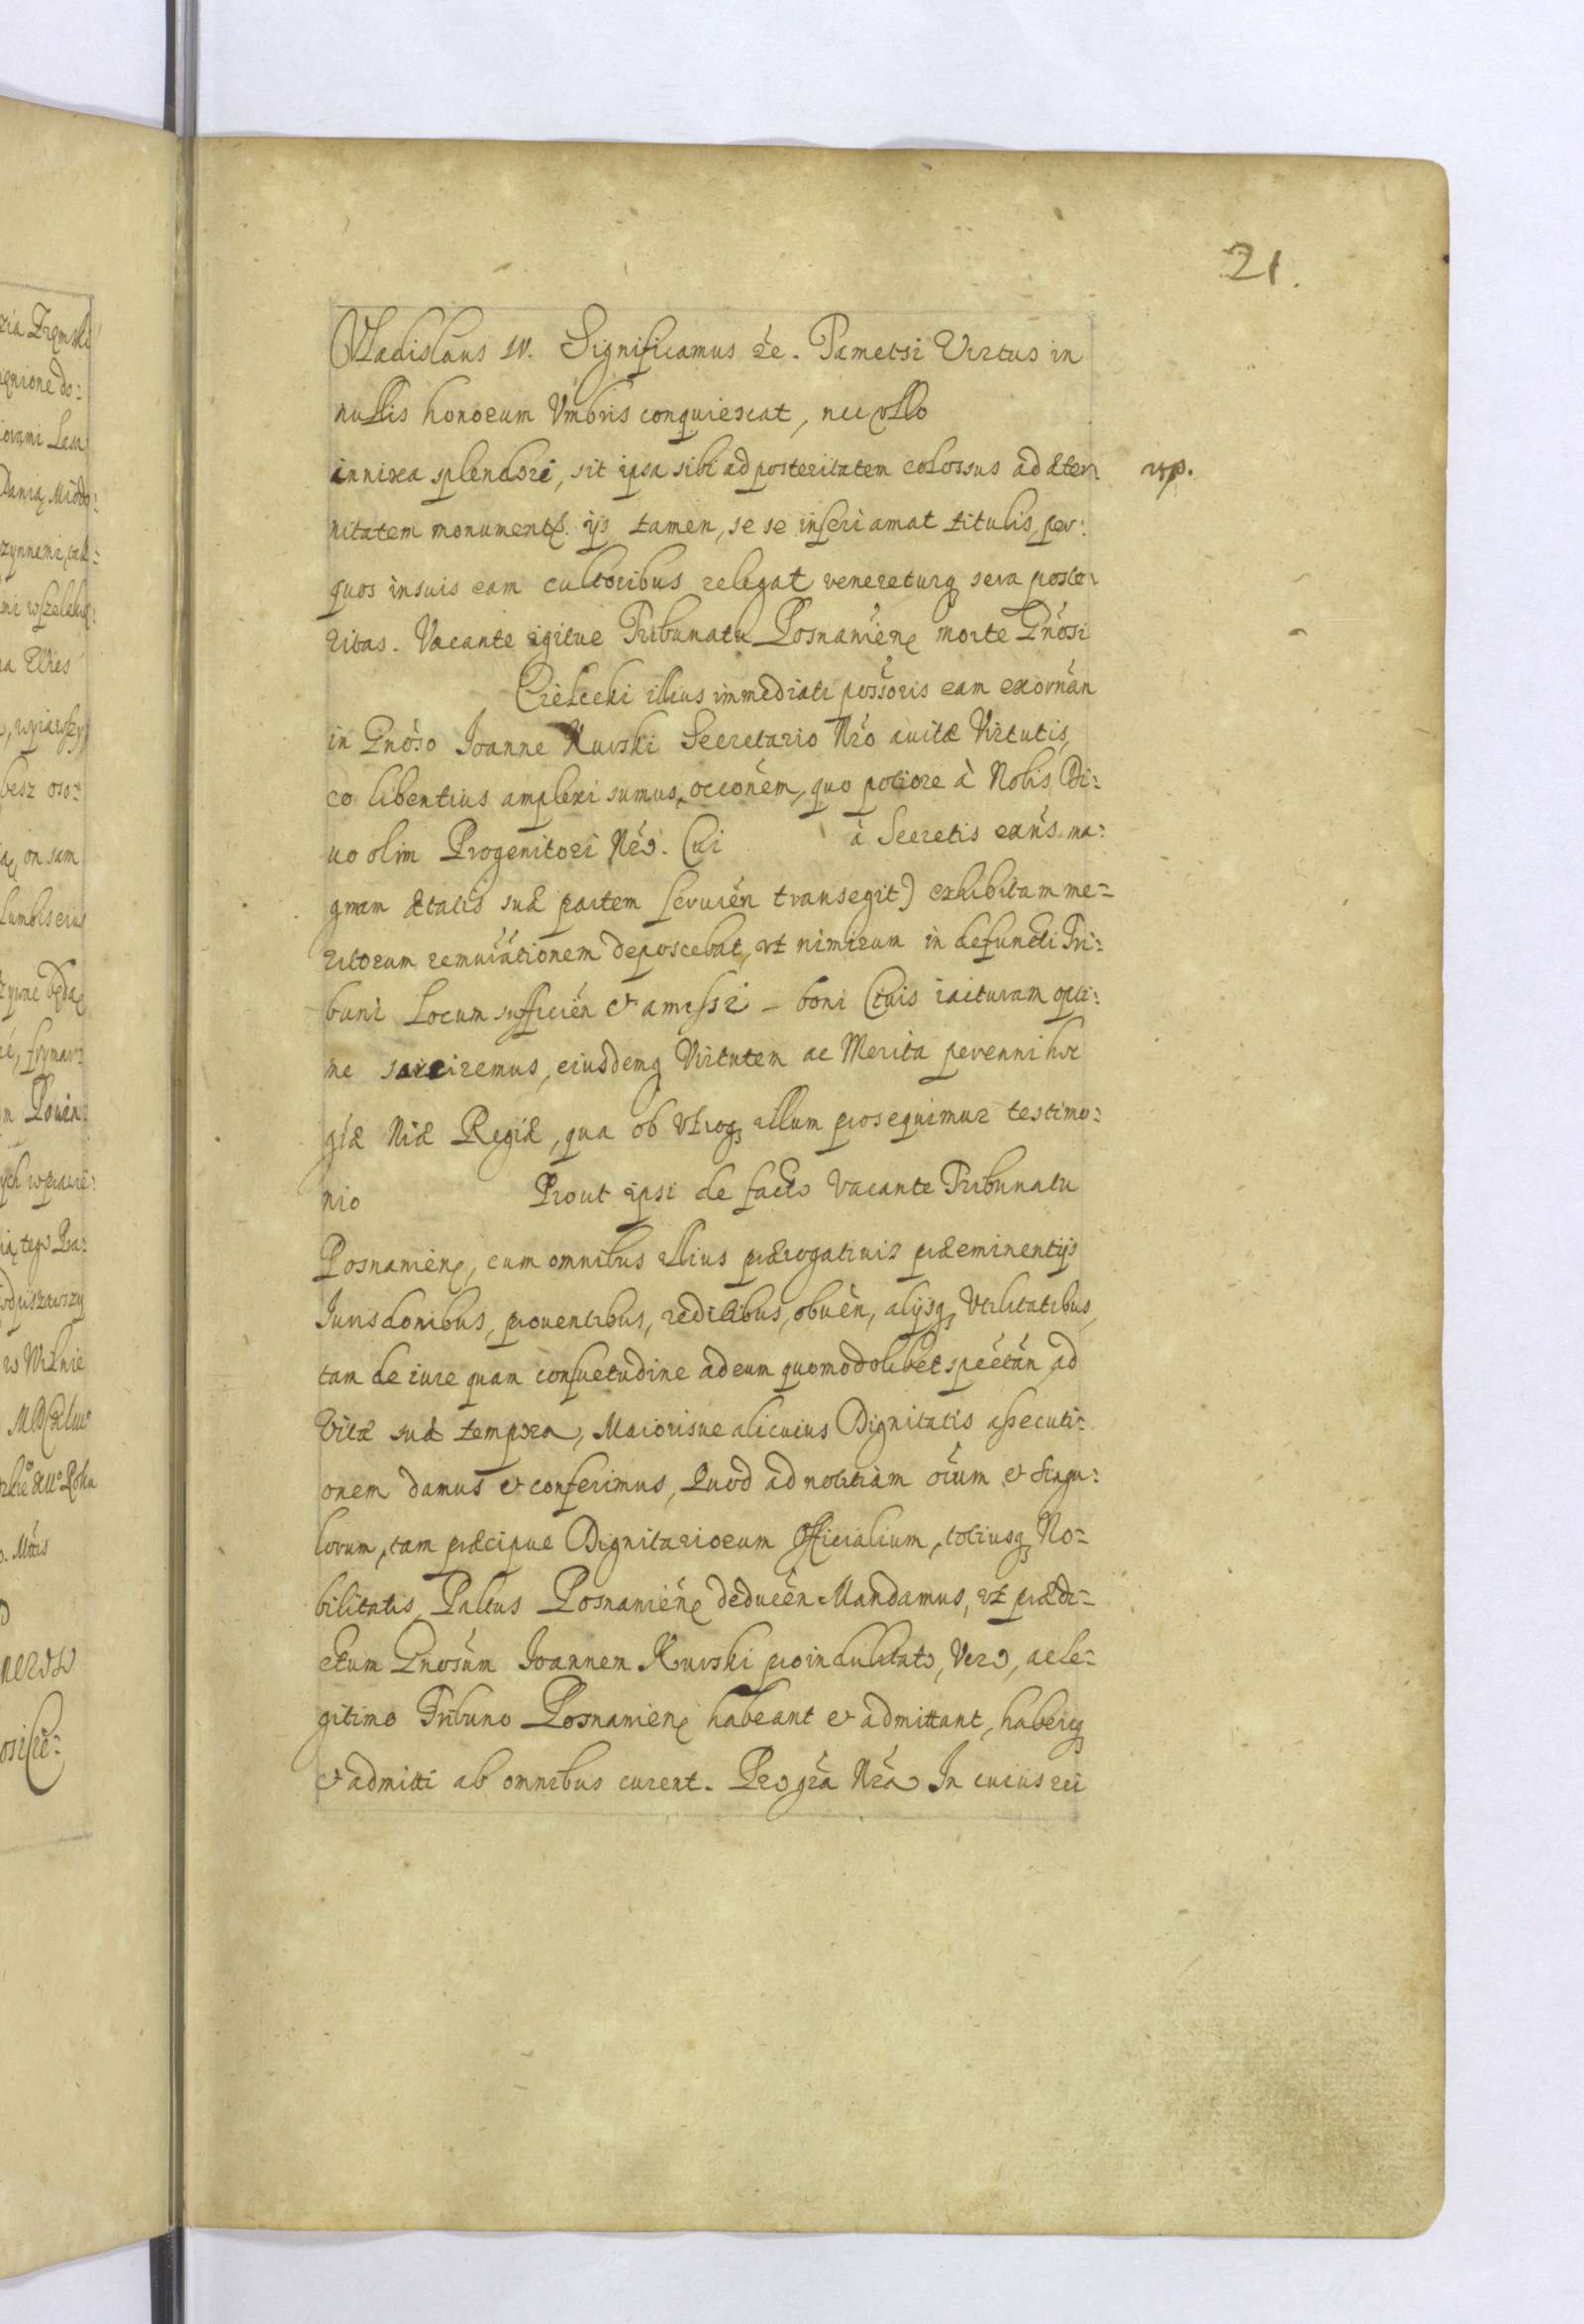 21.
Vladislaus IV. Significamus &c. Tametsi Virtus in
nullis honorum Vmbris conquiescat, nec vllo
innixa splendori, sit ipsa sibi ad posteritatem colossus ad æter-
nitatem monument. ijs tamen, se se inseri amat titulis, per:
quos in suis eam cultoribus relegat venereturq sera poste-
ritas. Vacante igitur Tribunatu Posnanien morte Gnosi
Cielecki illius immediati possoris eam exornan
in Gnoso Joanne Kurski Secretario Nro auitæ Virtutis,
eo libentius amplexi sumus, occonem, quo potiore à Nobis, Di:
uo olim Progenitori Nro. Cui à Secretis exans. ma:
gnam ætatis suæ partem seruien transegit) exhibitam me-
ritorum remurationem deposcebat, vt nimirum in defuncti Tri:
buni Locum sufficien & amissi - boni Ciuis iacturam opti:
me sarciremus, eiusdemq Virtutem ac Merita perenni hoc
giæ Nræ Regiæ, qua ob vtroq illum prosequimur testimo:
nio Prout ipsi de facto vacante Tribunatu
Posnanien, cum omnibus illius prærogatiuis præeminentijs
Jurisdonibus, prouentibus, reditibus, obuen, alijsq Vtilitatibus,
tam de iure quam consuetudine ad eum quomodolibet spectan, ad
Vitæ suæ tempora, Maiorisue alicuius Dignitatis assecuti-
onem damus & conferimus, Quod ad notitiam oium & singu:
lorum, tam præcipue Dignitariorum Officialium, totiusq No-
bilitatis, Paltus Posnanien deducen Mandamus, vt prædi-
ctum Gnosum Joannem Kurski pro indubitato, Vero, ac le-
gitimo Tribuno Posnanien habeant & admittant, haberiq
& admitti ab omnibus curent. Pro gra Nra In cuius rei